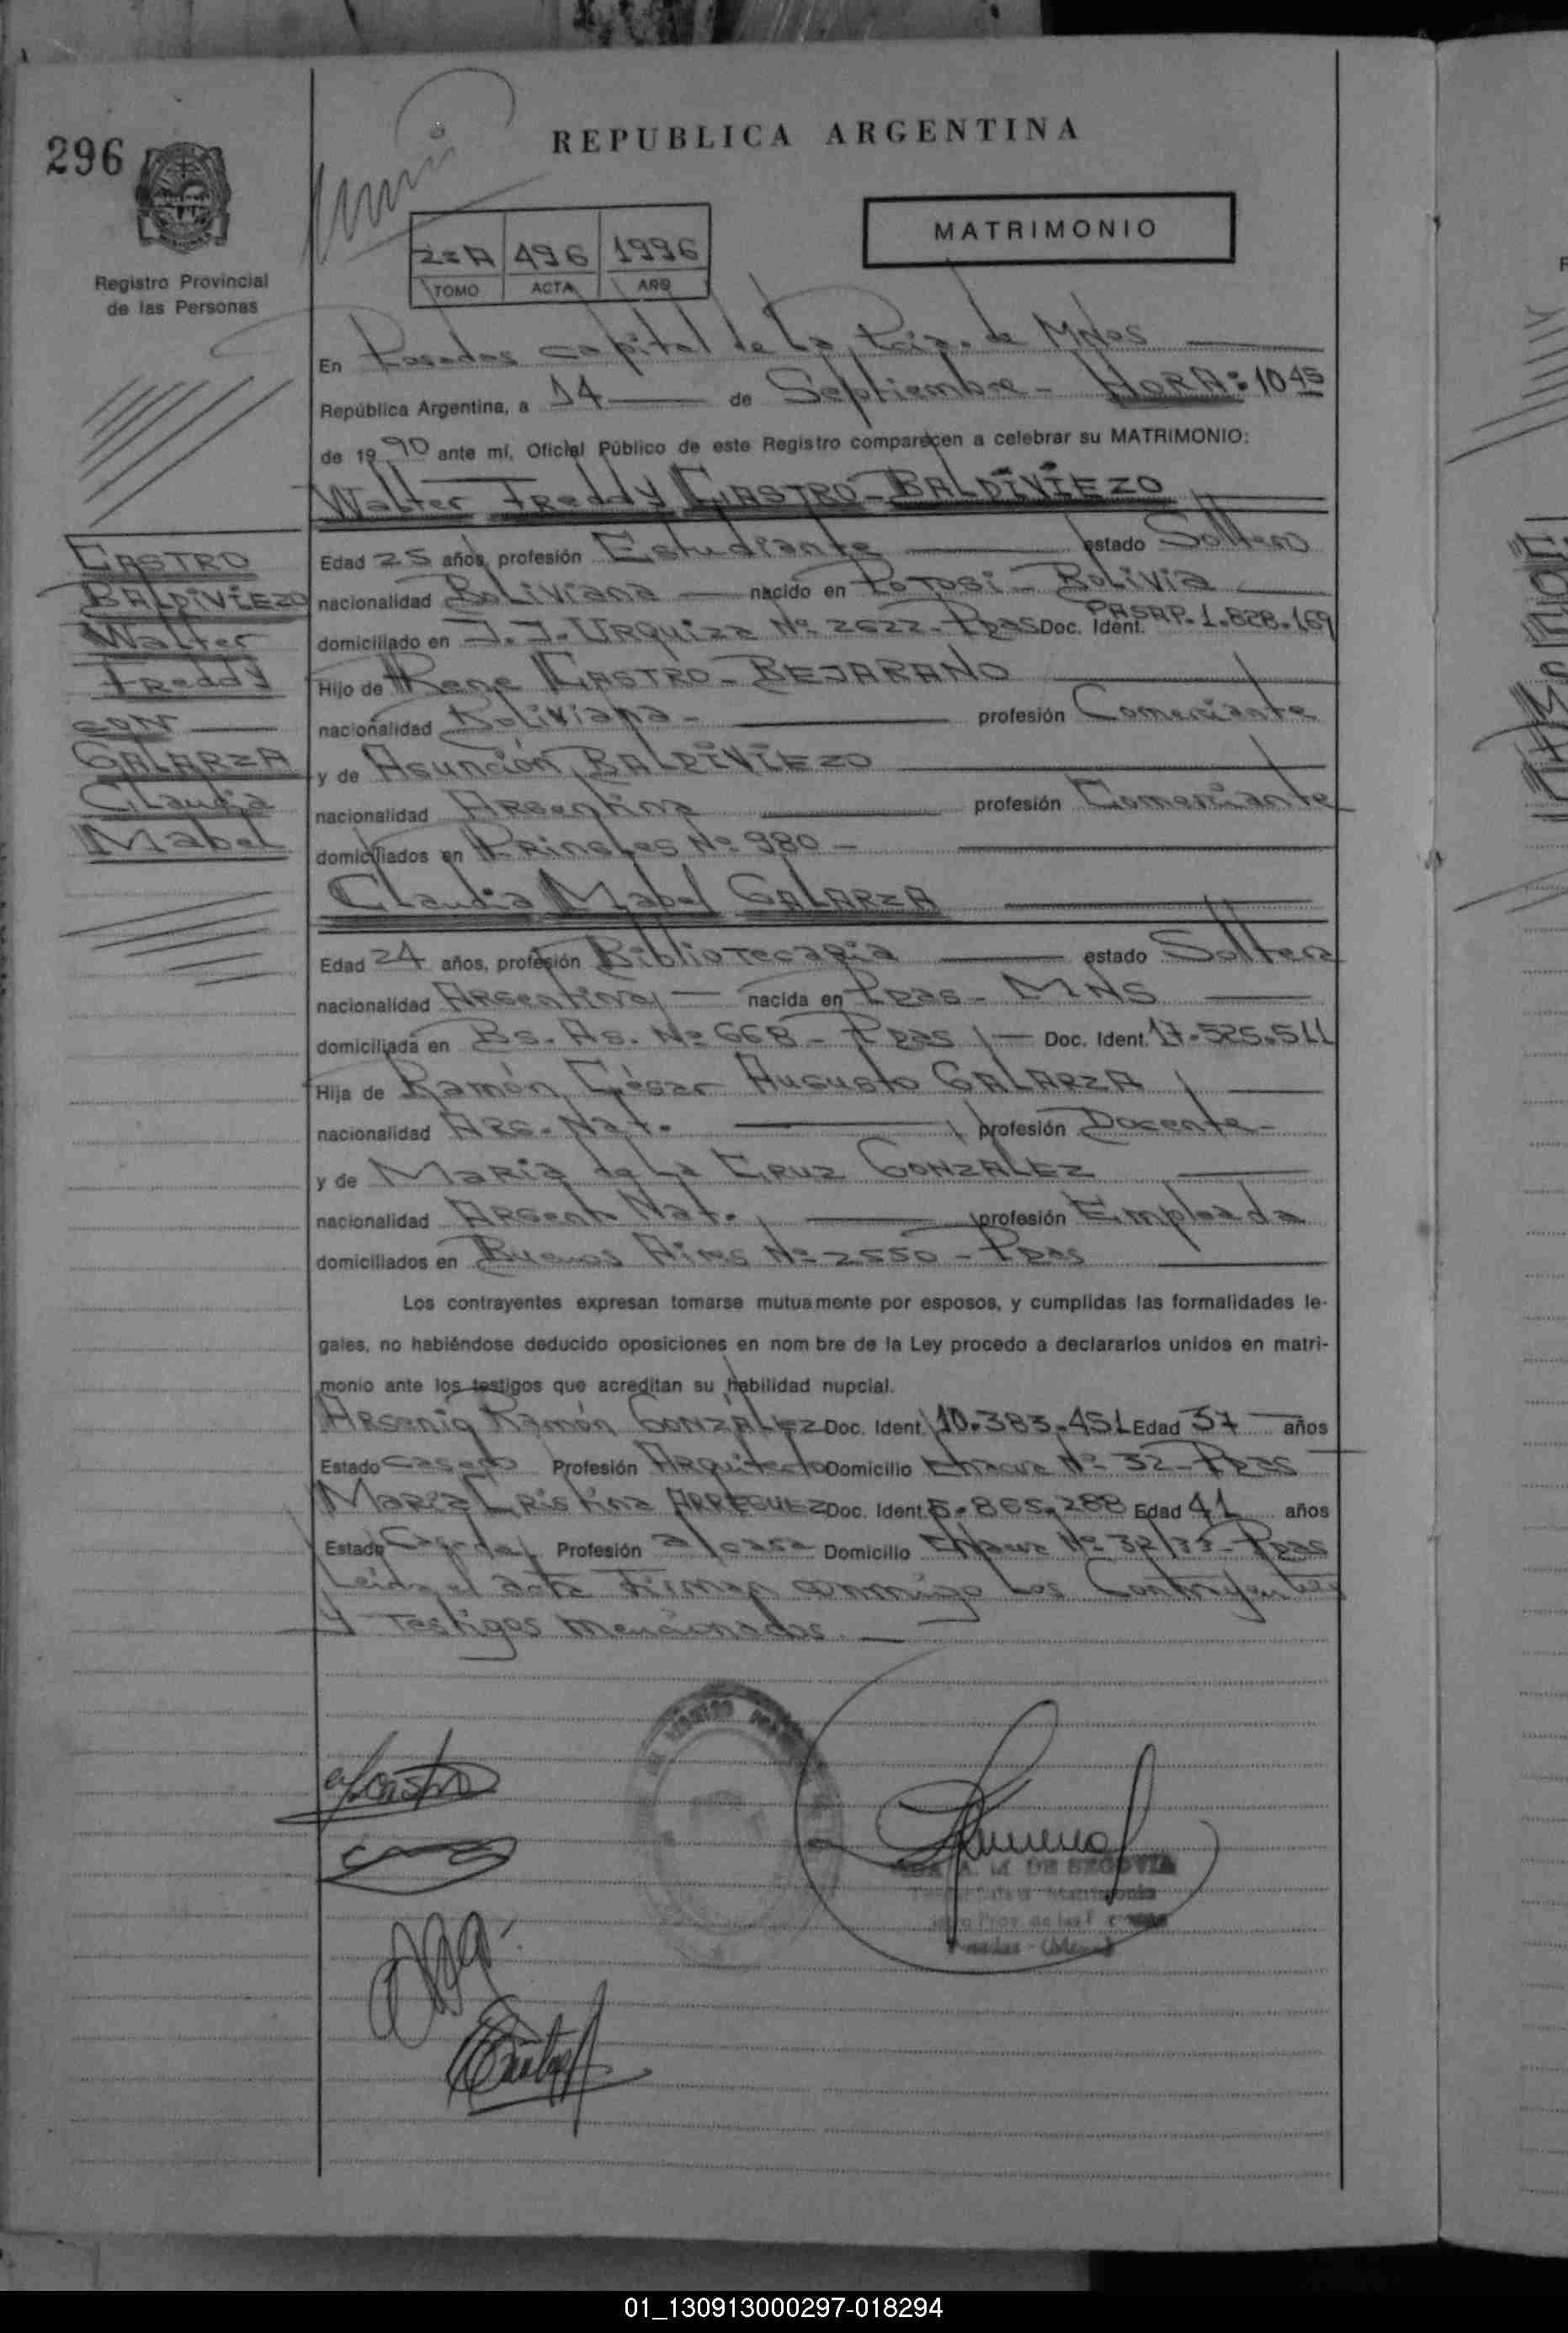 296
REPUBLICA ARGENTINA
Registro Provincial
de las Personas
MATRIMONIO
2=A 496 1996
TOMO ACTA AÑO
En Posadas capital de La Pcia. de MNes
República Argentina, a 14 de Septiembre - HORA: 10 45
de 19 90 ante mí, Oficial Público de este Registro comparecen a celebrar su MATRIMONIO:
Walter Freddy CASTRO-BALDIVIEZO
CASTRO
BALDIVIEZO
Walter
Freddy
CON
GALARZA
Claudia
Mabel
Edad 25 años, profesión Estudiante estado Soltero
nacionalidad Boliviana nacido en Potosi - Bolivia
domiciliado en J. J. Urquiza Nº 2622 - Ppas Doc. Ident. PASAP. 1.828.169
Hijo de Rene CASTRO - BEJARANO
nacionalidad Boliviana - profesión Comerciante
y de Asunción BALDIVIEZO
nacionalidad Argentina profesión Comerciante
domiciliados en Pringles Nº 980 -
Claudia Mabel GALARZA
Edad 24 años, profesión Bibliotecaria estado Soltera
nacionalidad Argentina nacida en Ppas - MNS
domiciliada en Bs. As. Nº 668 - Ppas Doc. Ident. 17.525.511
Hija de Ramón César Augusto GALARZA
nacionalidad Arg. Nat. profesión Docente -
y de Maria de La Cruz GONZALEZ
nacionalidad Argent. Nat. profesión Empleada
domiciliados en Buenos Aires Nº 2550 - Ppas
Los contrayentes expresan tomarse mutuamente por esposos, y cumplidas las formalidades le-
gales, no habiéndose deducido oposiciones en nom bre de la Ley procedo a declararlos unidos en matri-
monio ante los testigos que acreditan su habilidad nupcial.
Arsenio Ramón GONZALEZ Doc. Ident. 10.383.451 Edad 37 años
Estado Casado Profesión Arquitecto Domicilio Nº 32 - Ppas
Maria Cristina ARREGUEZ Doc. Ident. 5.865.288 Edad 41 años
Estado Casada Profesión a/casa Domicilio Nº 32/33 - Ppas
Leida el acta Firman conmigo Los Contrayentes
y Testigos mencionados.
A. M. DE SEGOVIA
01_130913000297-018294